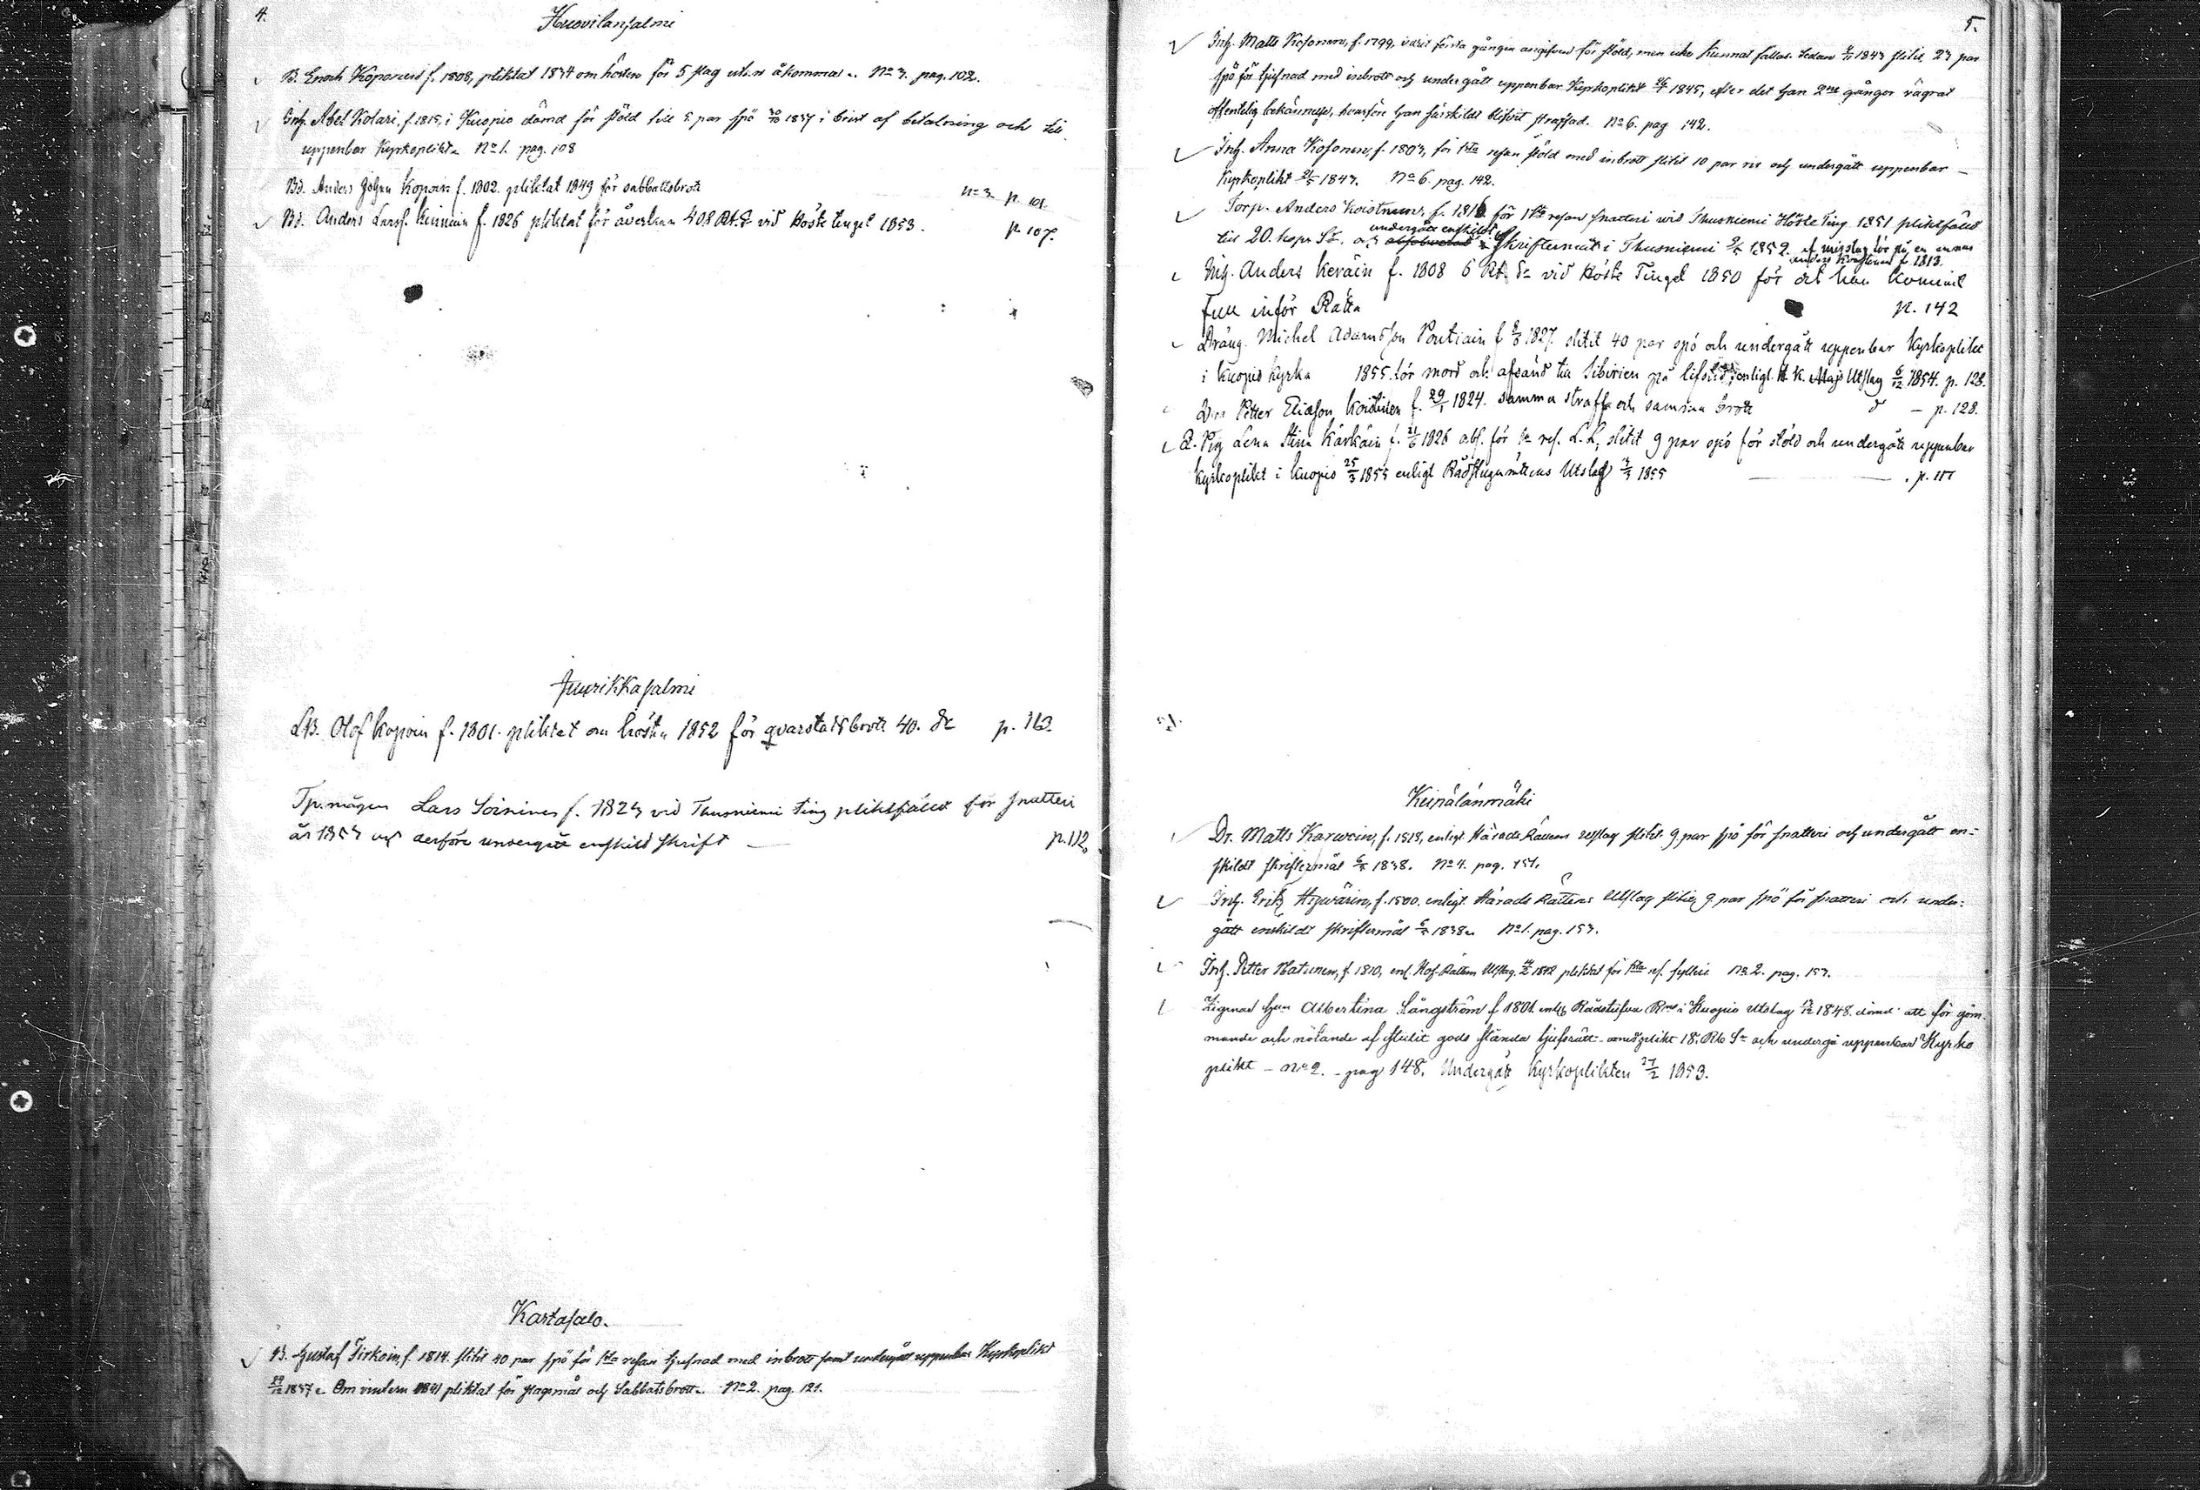 4.
Huovilansalmi
B. Enoch Koponen f. 1808, pliktat 1834 om hösten för 5 slag utan åkomma. No 3. pag. 102.
Inh. Abel Kolari, f. 1815, i Kuopio dömd för stöld till 5 par spö 1837 i brist af betalning och till
uppenbar Kyrkoplikt. No 1. pag. 108
Bd. Anders Johan Kopoin f. 1802. pliktat 1849 för sabbatsbrott No 3 p. 101.
Bd. Anders Larss. f. 1826 pliktat för åverkan vid Höste tinget 1853. p. 107.
Juurikkasalmi
LB. Olof Kopoin f. 1801. pliktat om hösten 1852 för qvarstadsbrott 40. p. 113.
Lars Soininen f. 1823 vid Thusniemi ting pliktfäld för snatteri
år 1853 och derföre undergått enskild skrift p. 112.
Kartasalo.
B. Gustaf Tirkoin, f. 1814. slitit 40 par spö för 1sta resan tjufnad med inbrott samt undergått uppenbar Kyrkoplikt
29/12 1837. Om vintern 1841 pliktat för slagsmål och Sabbatsbrott. No 2. pag. 121.
5.
Inh. Matts Kosonen, f. 1799, varit första gången angifven för stöld, men icke kunnat fällas. Sedan 1843 slitit 23 par
spö för tjufnad med inbrott och undergått uppenbar Kyrkoplikt 1845, efter det han 2ne gånger vägrat
offentelig bekännelse, hvarföre han särskildt blifvit straffad. No 6. pag 142.
Inh. Anna Kosonen, f. 1803, för 1sta resan stöld med inbrott slitit 10 par ris och undergått uppenbar
Kyrkoplikt 1843. No 6. pag. 142.
Torp. Anders Koistinen, f. 1816 för 1sta resan snatteri vid Thusniemi Höste Ting 1851 pliktfäld
undergått enskildt
till 20. kop. Sr. och Skriftermål i Thusniemi 1852. af misstag för på en annan
Anders Koistinen f. 1813.
Inh. Anders Keräin f. 1808 6 Rb. Sr vid Höste Tinget 1850 för det han kommit
full inför Rätta p. 142
Dräng. Michel Adamsson Pontiain f. 1827. slitit 40 par spö och undergått uppenbar Kyrkoplikt
i Kuopio kyrka 1855. för mord och afsänd till Sibirien på lifstid, enligt H. K. Majs Utslag 6/12 1854. p. 128.
Petter Eliasson Koistinen f. 29/1 1824. samma straff och samma brott d - p. 128.
Pig. Lena Stina Kärkäin f. 21/6 1826 abs. för 1a res. L. L, slitit 9 par spö för stöld och undergått uppenbar
Kyrkoplikt i Kuopio 25/3 1855 enligt Rådstugurättens Utslag 1855 p. 111
Keipälänmäki
Dr. Matts Karwoin, f. 1818, enligt Härads Rättens utslag slitit 9 par spö för snatteri och undergått en-
skildt skriftermål 1838. No 4. pag. 151.
Inh. Erik Hyvärin, f. 1800. enligt Härads Rättens Utslag slitit 9 par spö för snatteri och under-
gått enskildt skriftermål 1838. No 1. pag. 153.
Inh. Petter Hatunen, f. 1810, enl. Hof Rättens Utslag 1842 pliktat för 1sta res. fylleri No 2. pag. 153.
Albertina Långström f 1801 enligt Rådstufvu Rns i Kuopio utslag 1848. dömd att för göm-
mande och nötande af stulit gods tjufsrätt plikt 18. Rb Sr och undergå uppenbar Kyrko
plikt - No 2. - pag 148. Undergått Kyrkoplikten 27/2 1853.